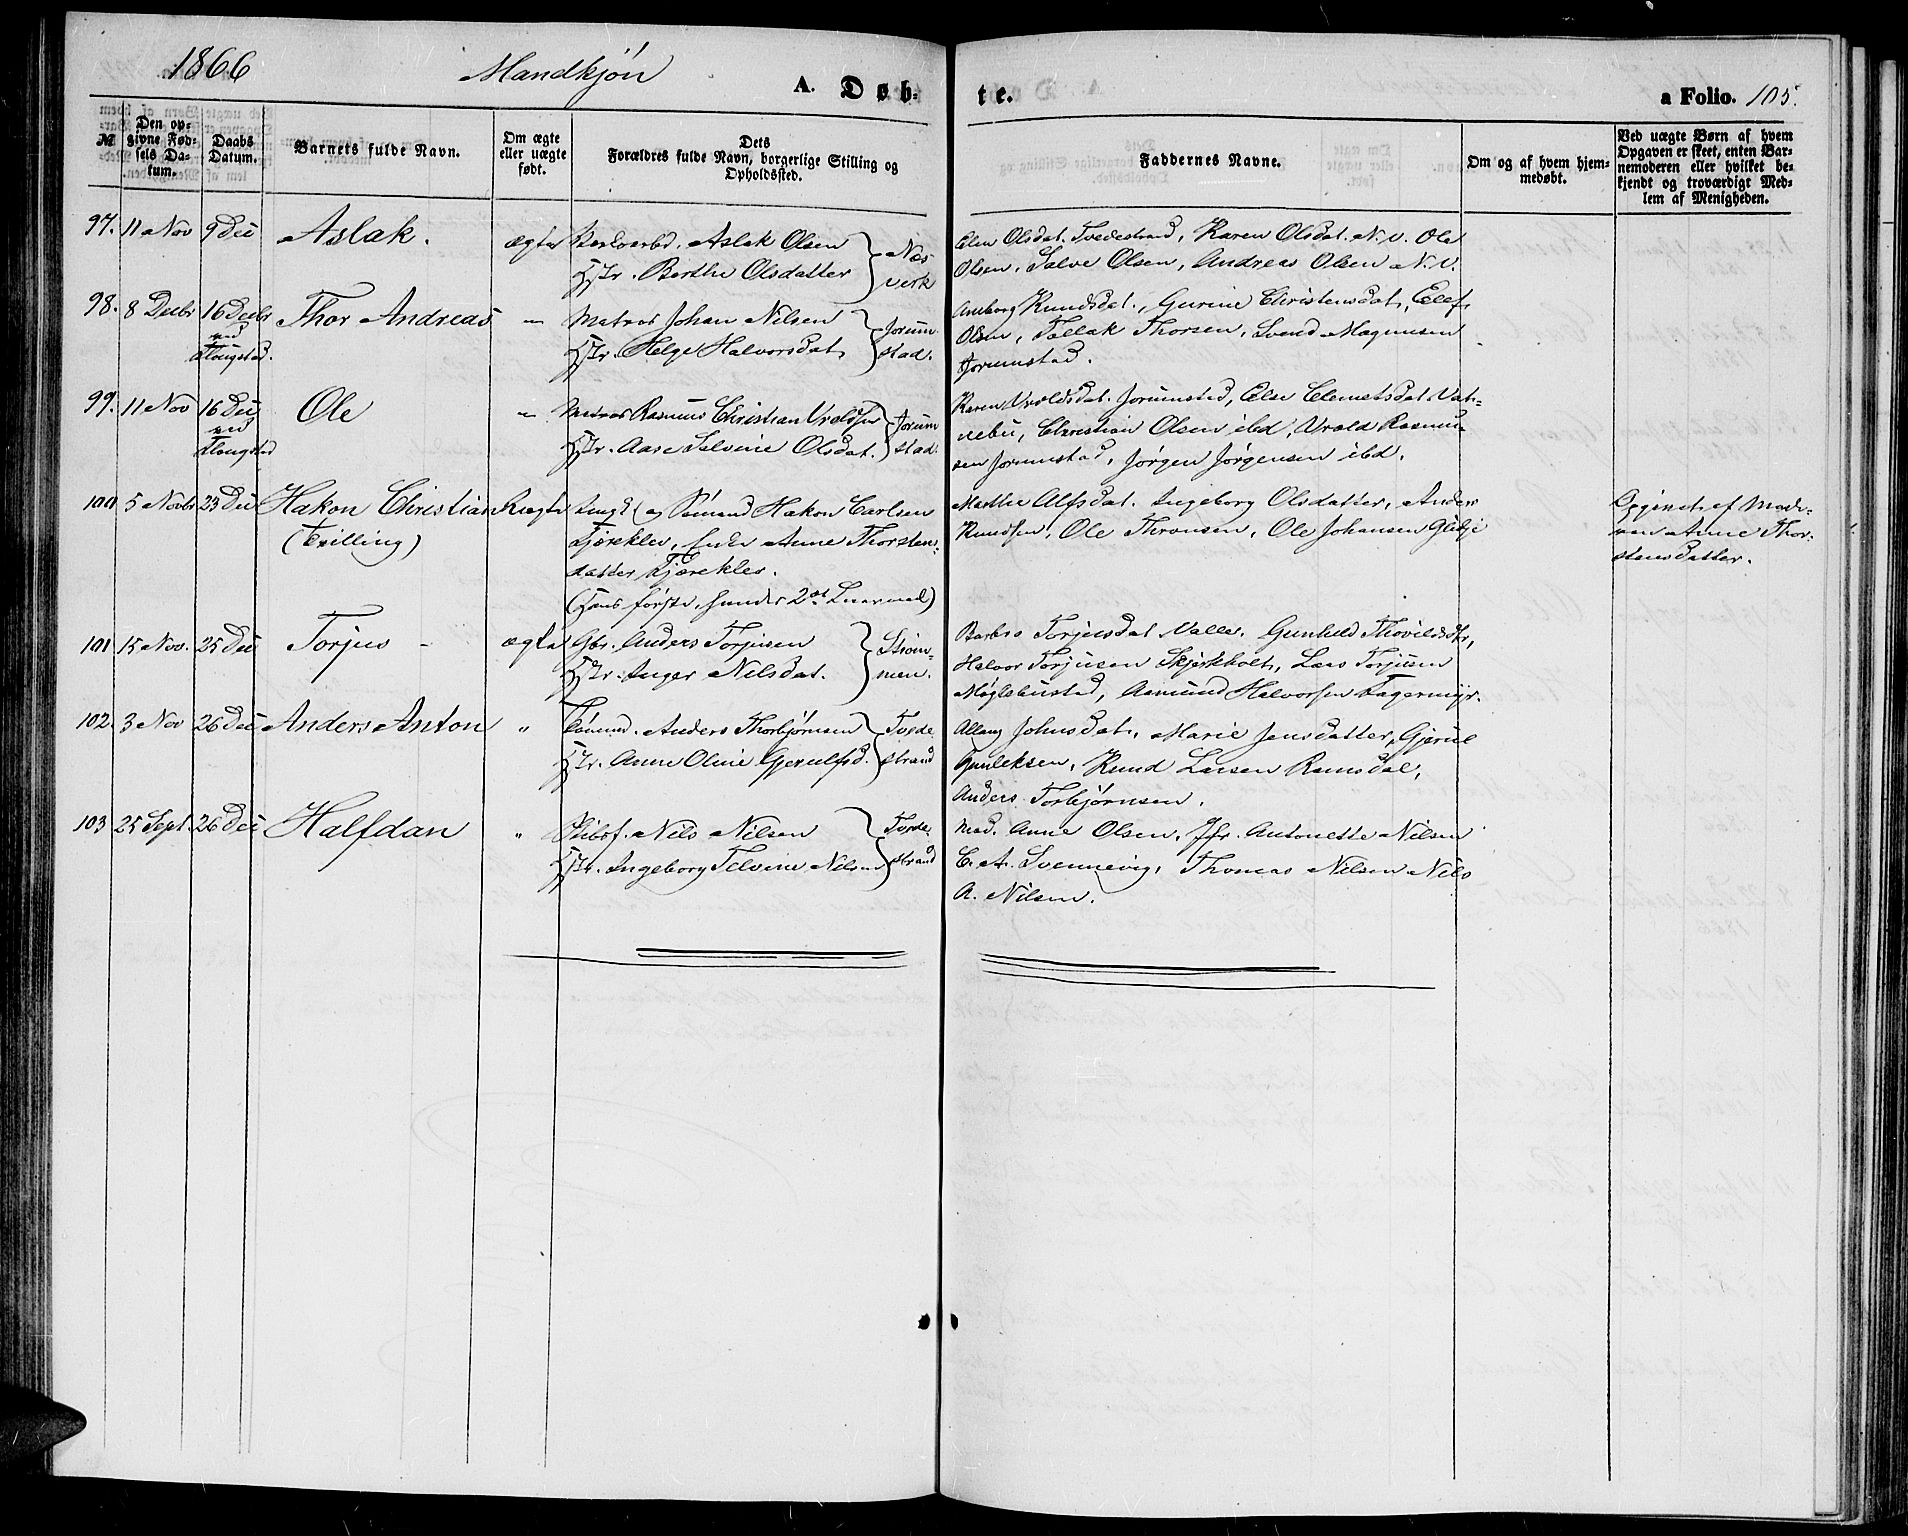 1866 Mandkjøn A. Døb-
te. a Folio. 105.
№
Den op-
givne Fød-
sels Da-
tum.
Daabs
Datum.
Barnets fulde Navn.
Om ægte
eller uægte
født.
Dets
Forældres fulde Navn, borgerlige Stilling og
Opholdssted.
Faddernes Navne.
Om og af hvem hjem-
medøbt.
Ved uægte Børn af hvem
Opgaven er skeet, enten Bar-
nemoderen eller hvilket be-
kjendt og troværdigt Med-
lem af Menigheden.
97. 11 Nov 9 Dec Aslak. ægte Aslak Olsen
Hstr. Berthe Olsdatter
Næs
verk
Elen Olsdat. Tvedestrand, Karen Olsdat. N.V. Ole
Olsen, Salve Olsen, Andreas Olsen N.V.
98. 8 Decbr 16 Decbr
ved
Flougstad.
Thor Andreas " Matros Johan Nilsen
Hstr. Helge Halvorsdat.
Jorum-
stad.
Anborg Knudsdat., Gurine Christensdat, Ellef
Olsen, Tellak Thorsen, Svend Magnusen
Jorumstad.
99. 11 Nov 16 Dec
ved
Flougstad
Ole " Matros Rasmus Christian Vroldsen
Hstr. Aase Selvine Olsdat.
Jorum
stad.
Karen Vroldsdat. Jorumstad, Else Clemetsdat Vat-
nebu, Christian Olsen ibd, Vrold Rasmu-
sen Jorumstad, Jørgen Jørgensen ibd.
100 5 Novbr 23 Dec Hakon Christian
(Tvilling)
Uægte Ungk. og Sømand Hakon Carlsen
Fjæreklev, Anne Thorstens-
datter Fjæreklev.
(Hans første, hendes 2det Leiermaal)
Marthe Alfsdat. Ingeborg Olsdatter, Anders
Knudsen, Ole Thronsen, Ole Johansen Gidsje
Opgivet af Mode-
ren Anne Thor-
stensdatter.
101 15 Nov. 25 Dec Torjus - ægte Gbr. Anders Torjusen
Hstr. Inger Nilsdat.
Strøm-
men.
Barbro Torjusdat Valle. Gunhild Thovildsdtr,
Halvor Torjusen Skjerkholt, Lars Torjusen
Møglebustad, Asmund Halvorsen Fagermyr.
102. 3 Nov 26 Dec Anders Anton " Sømand. Anders Thorbjørnsen
Hstr. Anne Oline Gjerulfsd.
Tvede
strand
Allaug Johnsdat, Marie Jensdatter, Gjerul
Gunleksen, Knud Larsen Ramsdal,
Anders Torbjørnsen.
103 25 Sept. 26 Dec Halfdan " Skibsf. Nils Nilsen
Hstr. Ingeborg Telvine Nilsen
Tvede-
strand
Mad. Anne Olsen, Jfr. Antonette Nilsen
C. A. Svennevig, Thomas Nilsen Nils
A. Nilsen.